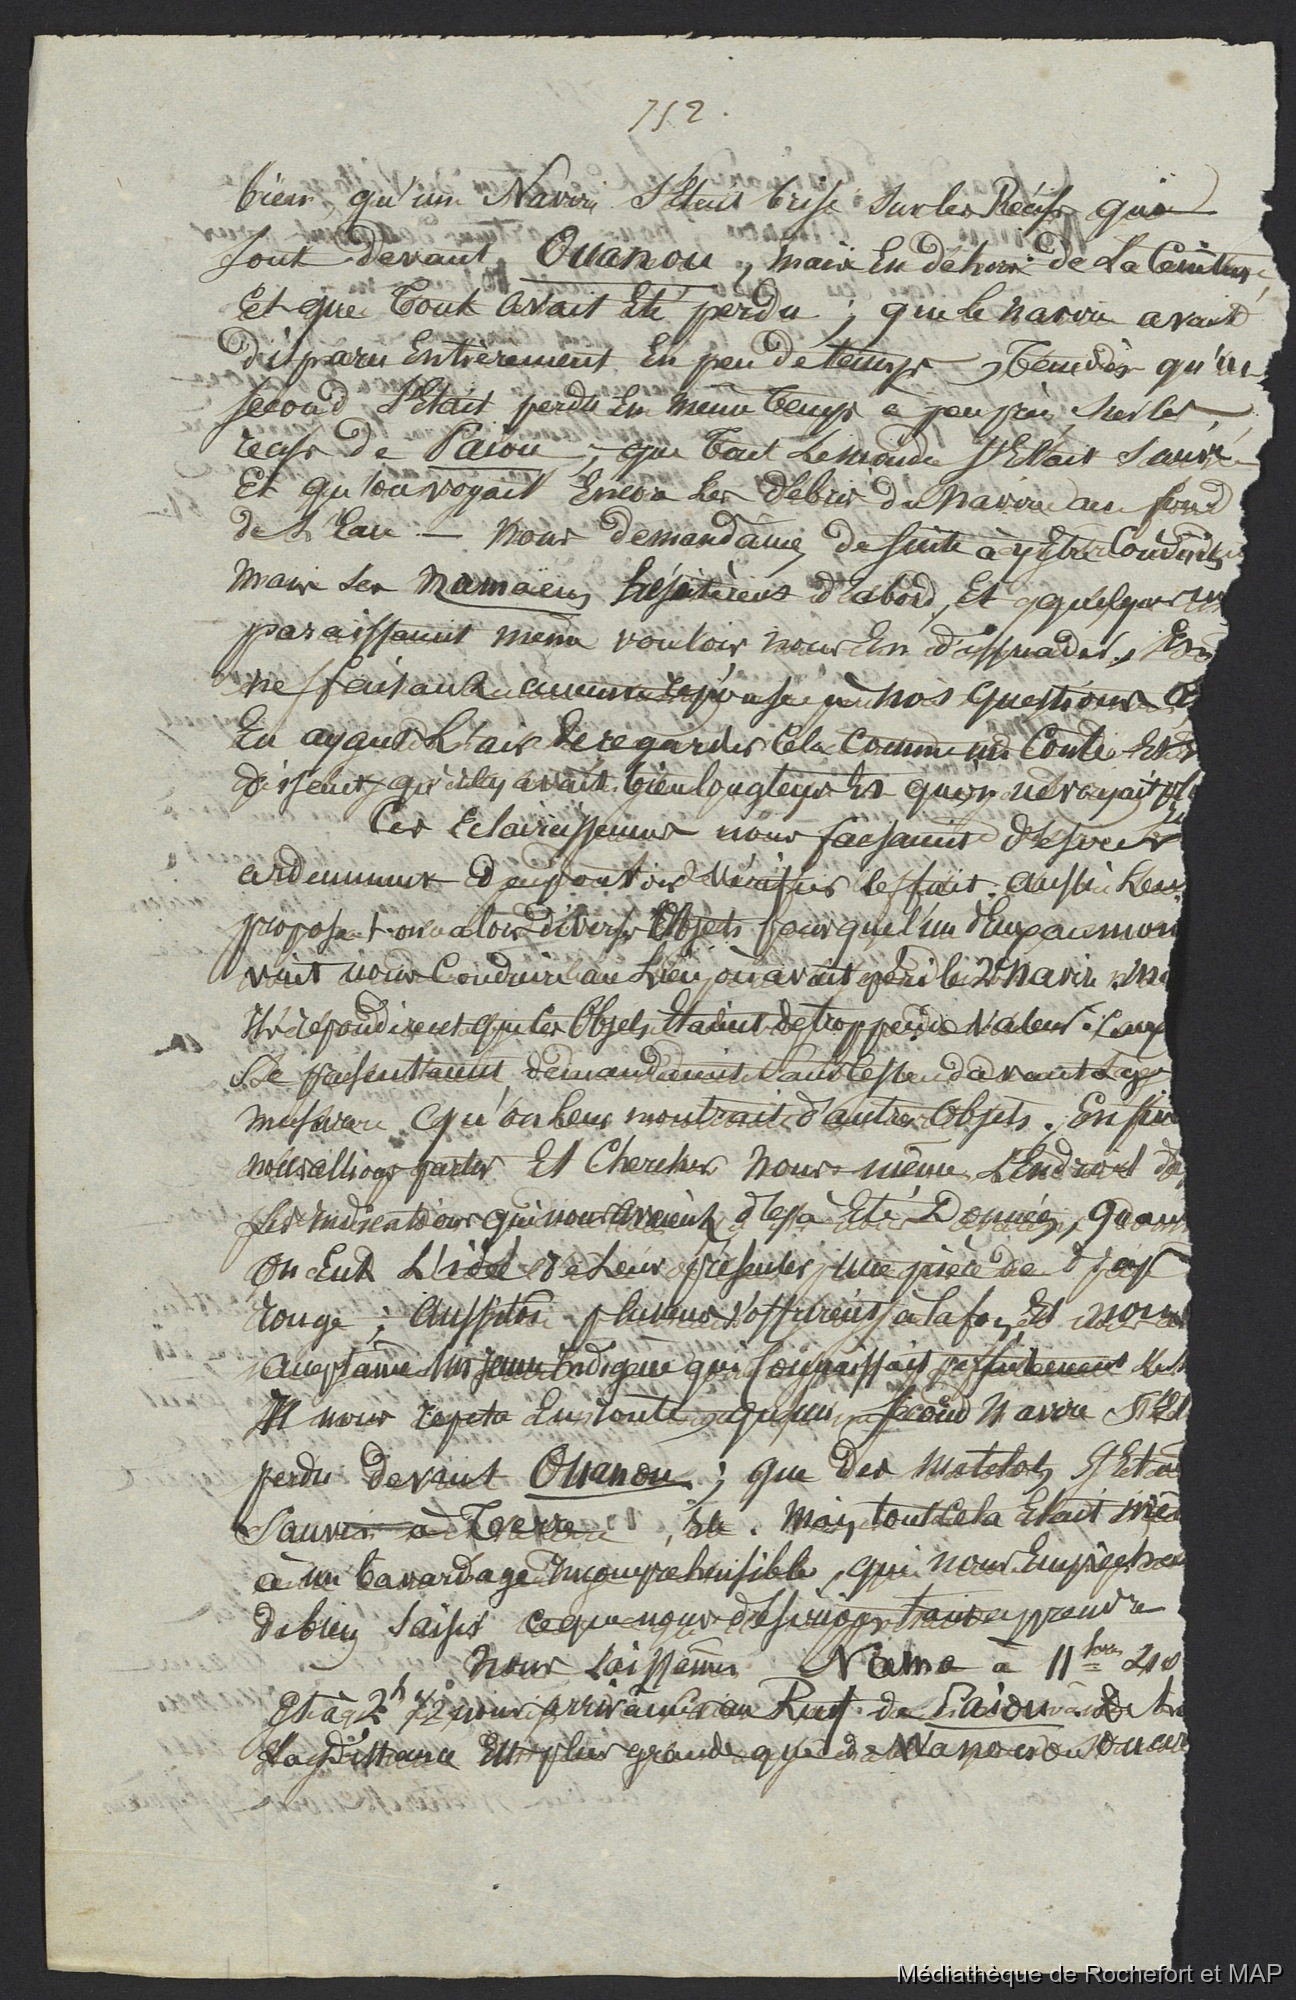 752.
bien, qu'un Navire s'Etait brisé sur les Récifs qui
sont devant Ouanou, mais En dehors de La Ceinture,
Et que Tout avait Eté perdu ; que le navire avait
disparu Entièrement En peu de temps, Tandis qu'un
second s'Etait perdu En même Temps à peu près sur les
récifs de Païou ; que Tout Le monde s'Etait sauvé
Et qu'on voyait Encore Les débris du Navire au fond
de L'Eau — Nous demandâmes de suite à y Etre Conduits
mais Les Namaëns hésitèrent d'abord, Et quelques uns
paraissaient même vouloir nous En dissuader,
ne faisant aucune réponse à nos questions
En ayant L'air de regarder Cela Comme un Conte Et
disent qu'il y avait bien longtemps Et qu'on ne voyait plus
Ces Eclaircissemens nous faisaient désirer
ardemment de pouvoir vérifier le fait. aussi Leur
proposa-t-on alors divers Objets pour que l'un d'Eux au moins
vint nous Conduire au Lieu où avait péri le 2e navire,
Ils répondirent que les Objets Etaient de trop peu de valeur.
se présentaient, demandaient sans cesse davantage
mesure qu'on Leur montrait d'autres Objets. Enfin
nous allions partir Et Chercher nous-même L'Endroit
les indications qui nous avaient déjà Eté Données, quand
On Eut L'idée de Leur présenter une pièce de drap
rouge ; Aussitôt plusieurs s'offrirent à la fois, Et nous
acceptâmes un jeune Indigène qui Connaissait parfaitement
Il nous répéta En route qu'un second Navire s'Et
perdu devant Ouanou ; que des matelots s'Et
sauvés à Terre, &c. Mais tout Cela Etait mêlé
à un bavardage incompréhensible, qui nous Empêchait
de bien saisir ce que nous désirions tant apprendre
Nous Laissâmes Nama à 11 hres
Et à 2h 1/2 nous arrivâmes au Récif de Païou
La distance Est plus grande que de Vanou
Médiathèque de Rochefort et MAP